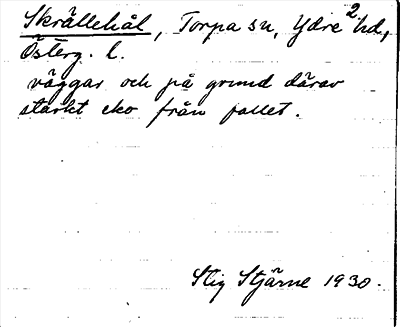 Skrällehål, Torpa sn, Ydre hd, 2.
Österg. l.
väggar och på grund därav
starkt eko från fallet.
Stig Stjärne 1930.